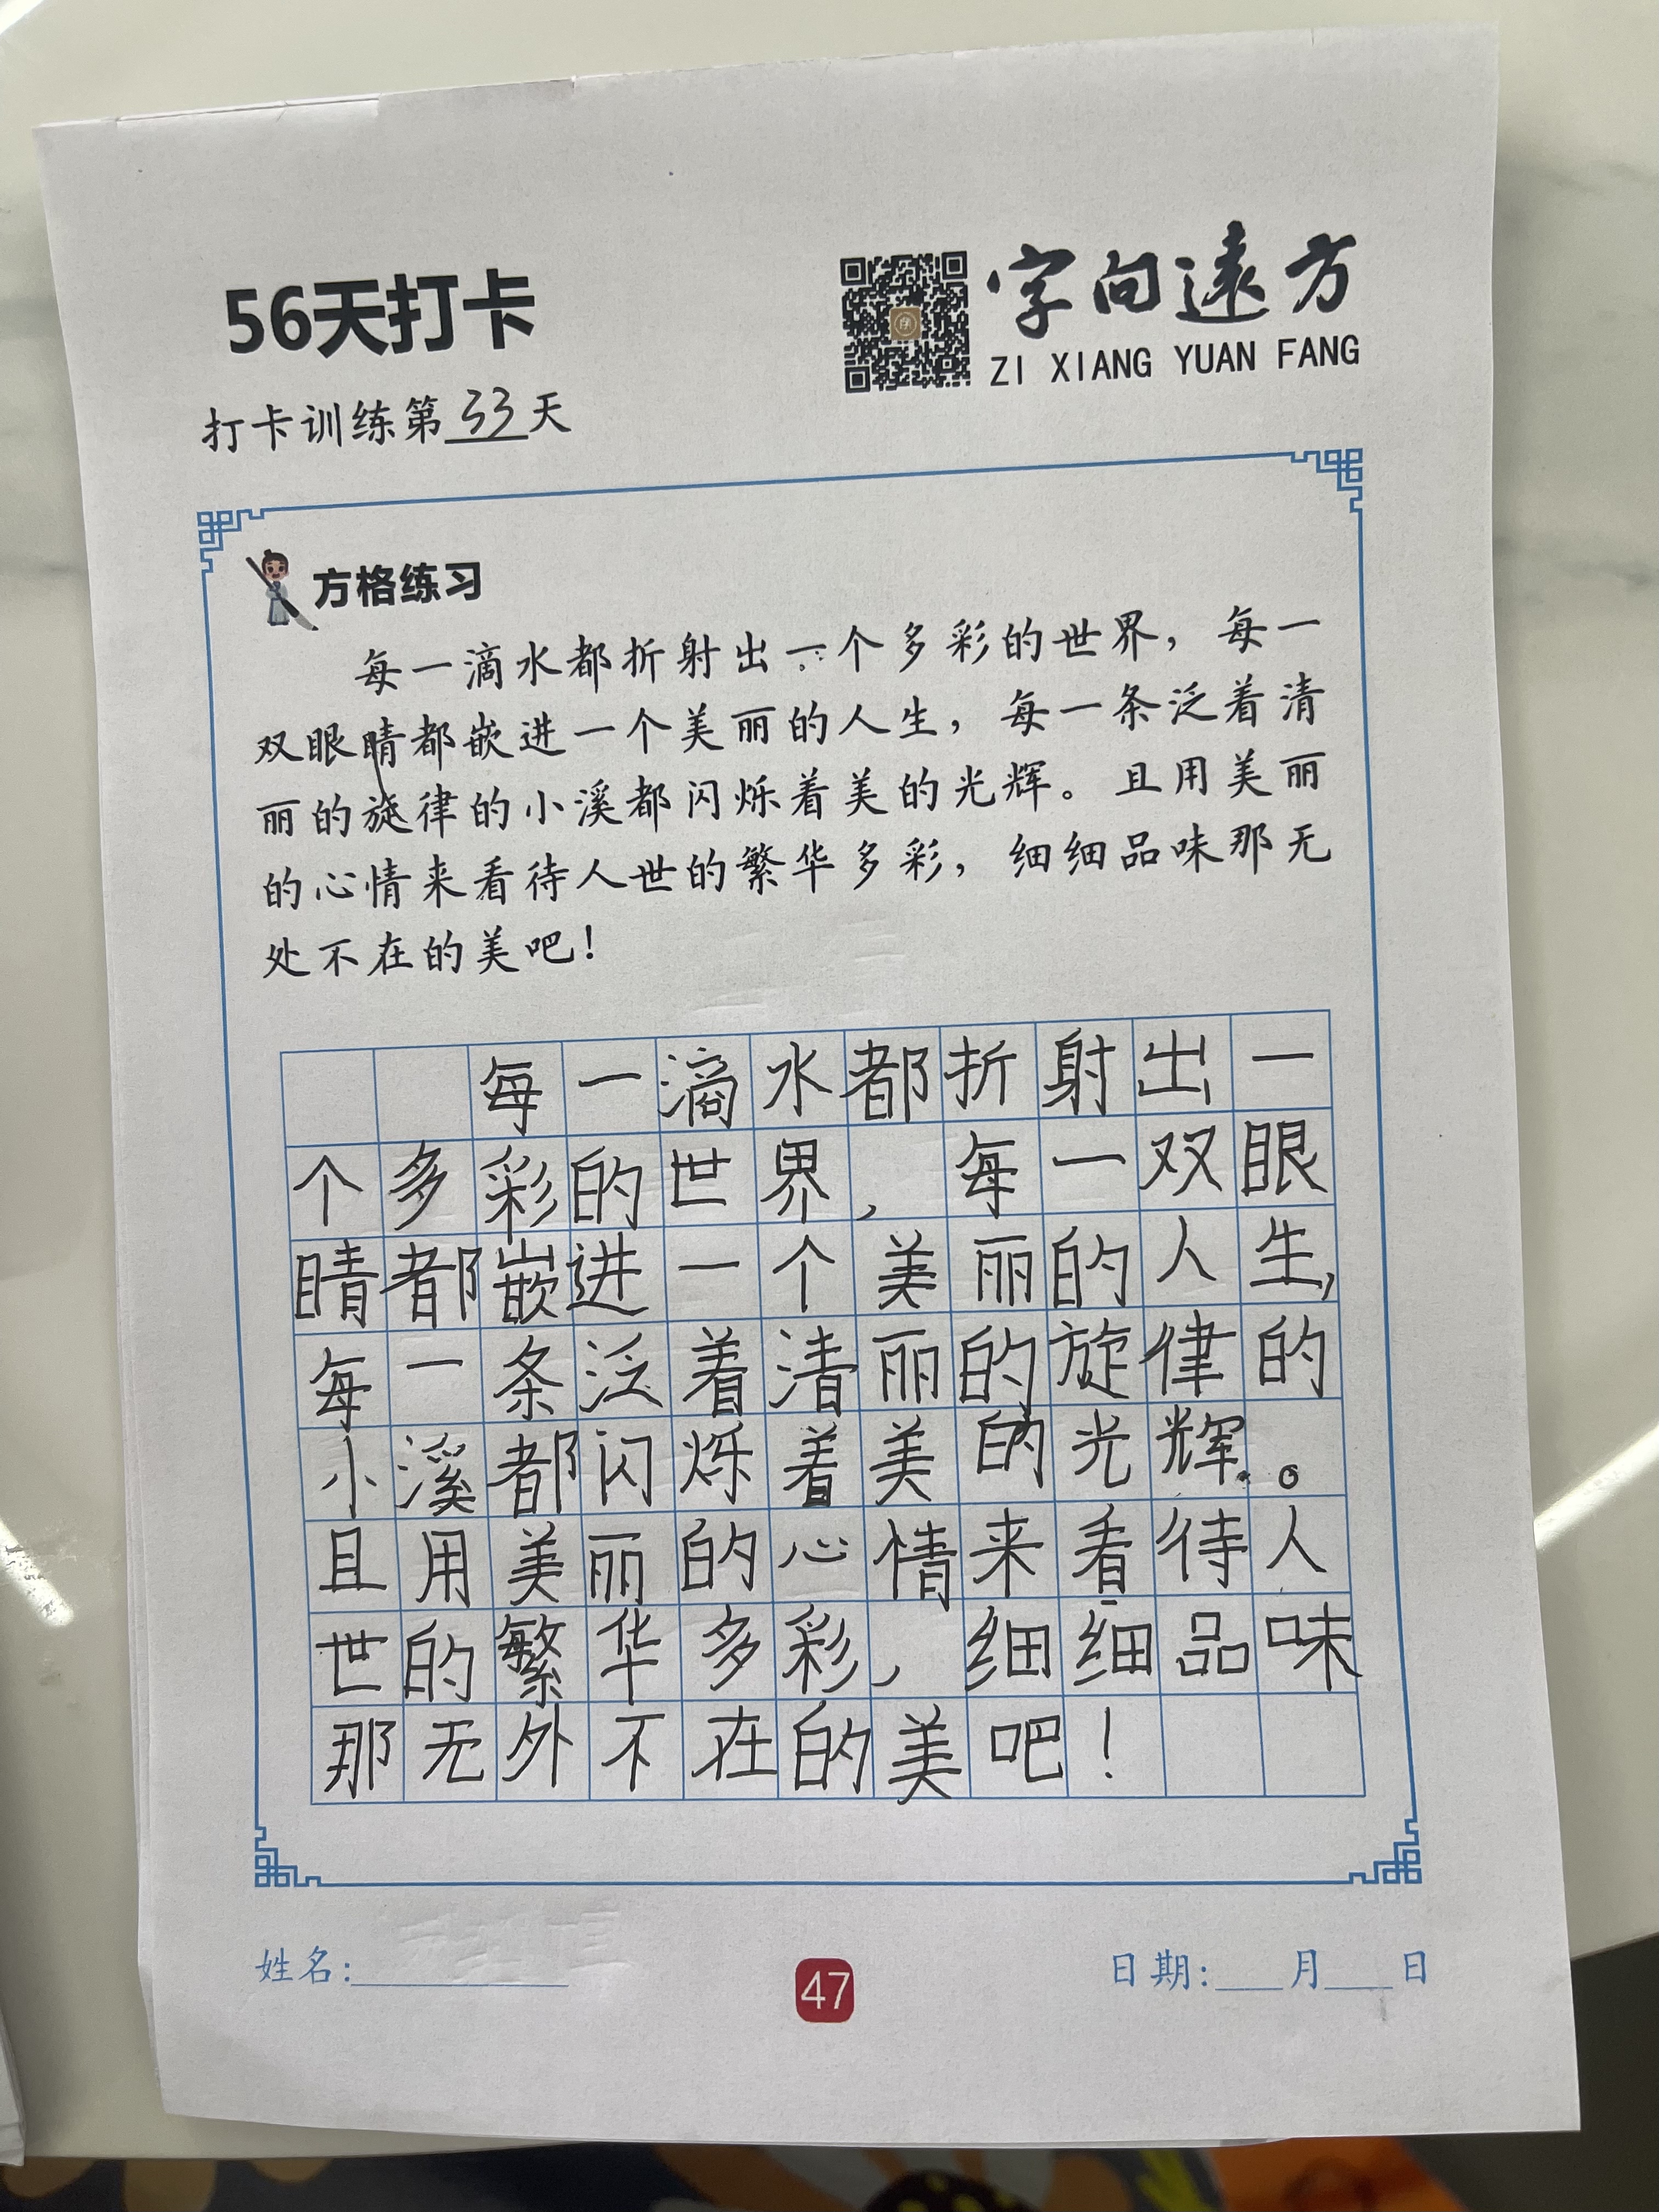 56天打卡
字向遠方
ZI XIANG YUAN FANG
打卡训练第33天
方格练习
每一滴水都折射出一个多彩的世界，每一
双眼睛都嵌进一个美丽的人生，每一条泛着清
丽的旋律的小溪都闪烁着美的光辉。且用美丽
的心情来看待人世的繁华多彩，细细品味那无
处不在的美吧！
每一滴水都折射出一
个多彩的世界，每一双眼
睛都嵌进一个美丽的人生，
每一条泛着清丽的旋律的
小溪都闪烁着美的光辉。
且用美丽的心情来看待人
世的繁华多彩，细细品味
那无外不在的美吧！
姓名：
47
日期：___月___日